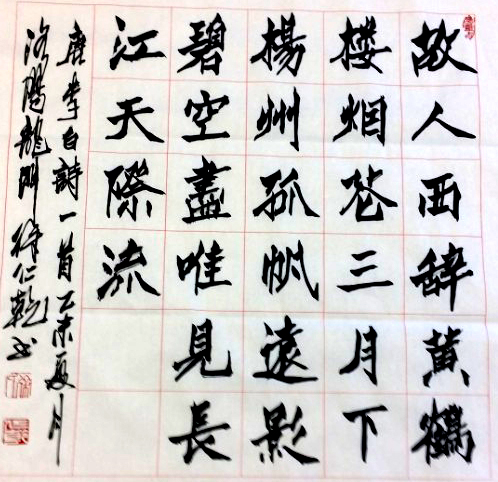 故人西辞黄鶴
楼烟花三月下
揚州孤帆遠影
碧空盡唯見長
江天際流
唐李白詩一首乙未夏月
洛陽龍門符仁乾书